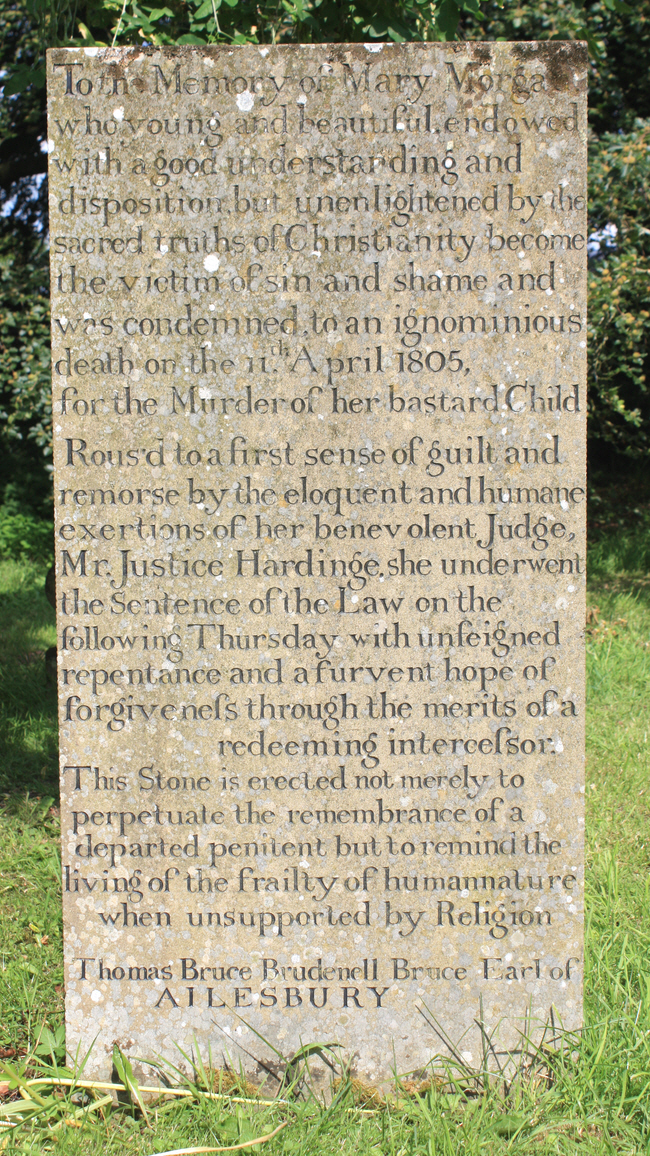 To the Memory of Mary Morga
who young and beautiful, endowed
with a good understanding and
disposition, but unenlightened by the
sacred truths of Christianity become
the victim of sin and shame and
was condemned, to an ignominious
death on the 11.th April 1805,
for the Murder of her bastard Child
Rous'd to a first sense of guilt and
remorse by the eloquent and humane
exertions of her benevolent Judge,
Mr. Justice Hardinge, she underwent
the Sentence of the Law on the
following Thursday with unfeigned
repentance and a furvent hope of
forgiveneſs through the merits of a
redeeming interceſsor.
This Stone is erected not merely to
perpetuate the remembrance of a
departed penitent but to remind the
living of the frailty of human nature
when unsupported by Religion
Thomas Bruce Brudenell Bruce Earl of
AILESBURY